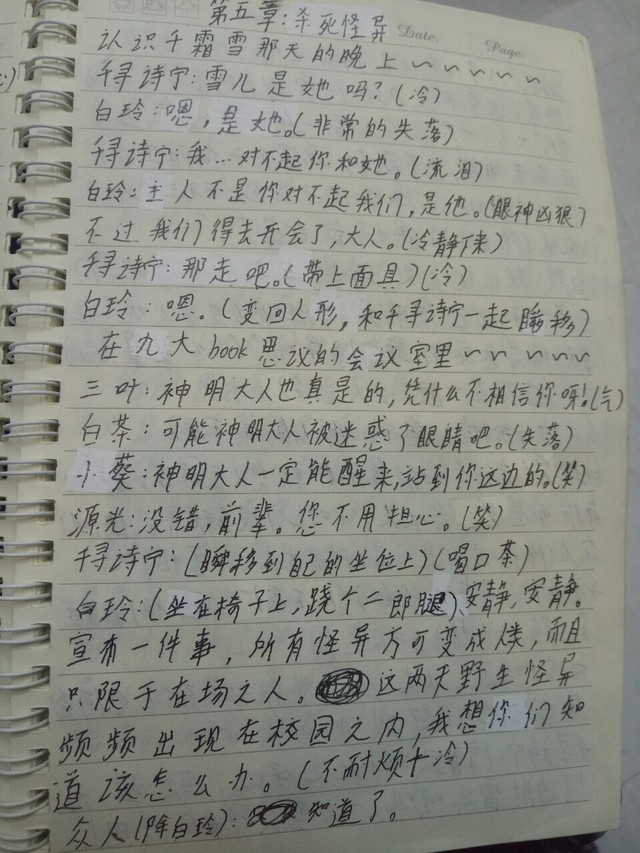 第五章:杀死怪异
Date.
Page.
认识千霜雪那天的晚上~~~~~
千寻诗宁:雪儿是她吗?(冷)
白玲:嗯,是她。(非常的失落)
千寻诗宁:我…对不起你和她。(流泪)
白玲:主人不是你对不起我们,是他。(眼神凶狠)
不过我们得去开会了,大人。(冷静下来)
千寻诗宁:那走吧。(带上面具)(冷)
白玲:嗯。(变回人形,和千寻诗宁一起瞬移)
在九大book思议的会议室里~~~~~
三叶:神明大人也真是的,凭什么不相信你呀!(气)
白茶:可能神明大人被迷惑了眼睛吧。(失落)
小葵:神明大人一定能醒来,站到你这边的。(笑)
源光:没错,前辈。您不用担心。(笑)
千寻诗宁:(瞬移到自己的坐位上)(喝口茶)
白玲:(坐在椅子上,跷个二郎腿)、安静,安静。
宣布一件事,所有怪异方可变成人,而且
只限于在场之人。这两天野生怪异
频频出现在校园之内,我想你们知
道该怎么办。(不耐烦+冷)
众人(除白玲):知道了。